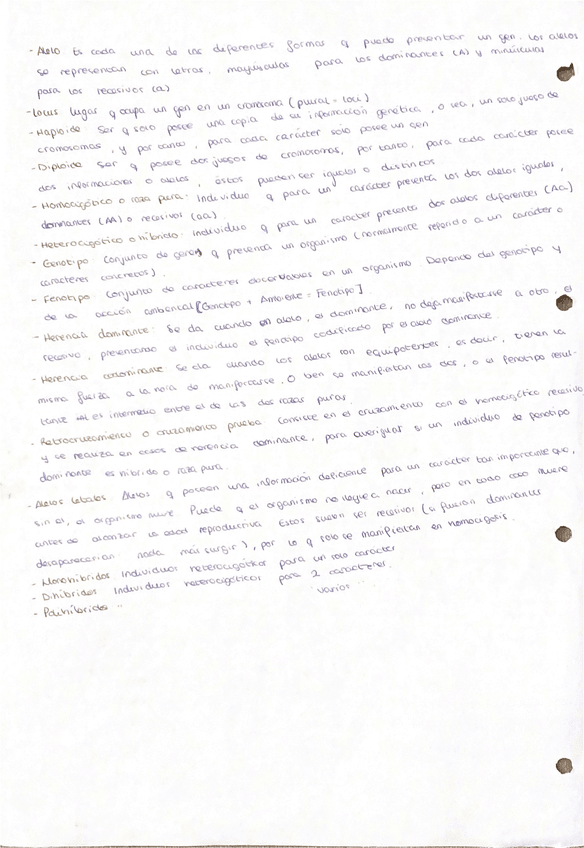 - Alelo Es cada una de las diferentes formas q puede presentar un gen. Los alelos
se representan con letras, mayúsculas para los dominantes (A) y minúsculas
para los recesivos (a)
- Locus lugar q ocupa un gen en un cromosoma (plural = loci)
- Haploide Ser q solo posee una copia de su información genética, o sea, un solo juego de
cromosomas, y por tanto, para cada carácter solo posee un gen
- Diploide Ser q posee dos juegos de cromosomas, por tanto, para cada carácter posee
dos informaciones o alelos, éstos pueden ser iguales o distintos
- Homocigótico o raza pura: Individuo q para un carácter presenta los dos alelos iguales,
dominantes (AA) o recesivos (aa).
- Heterocigótico o híbrido: individuo q para un caracter presenta dos alelos diferentes (Aa)
- Genotipo Conjunto de genes q presenta un organismo (normalmente referido a un carácter o
caracteres concretos).
- Fenotipo Conjunto de caracteres observables en un organismo Depende del genotipo y
de la acción ambiental [Genotipo + Ambiente = Fenotipo]
- Herencia dominante: Se da cuando un alelo, el dominante, no deja manifestarse a otro, el
recesivo, presentando el individuo el fenotipo codificado por el alelo dominante.
- Herencia codominante Se da cuando los alelos son equipotentes, es decir, tienen la
misma fuerza a la hora de manifestarse, O bien se manifiestan los dos, o el fenotipo resul-
tante es intermedio entre el de las dos razas puras.
- Retrocruzamiento o cruzamiento prueba Consiste en el cruzamiento con el homocigótico recesivo
y se realiza en casos de herencia dominante, para averiguar si un individuo de fenotipo
dominante es híbrido o raza pura.
- Alelos letales Alelos q poseen una información deficiente para un caracter tan importante que,
sin el, el organismo muere Puede q el organismo no llegue a nacer, pero en todo caso muere
antes de alcanzar la edad reproductiva Estos suelen ser recesivos (si fueran dominantes
desaparecerían nada más surgir), por lo q solo se manifiestan en homocigosis.
- Monohíbridos Individuos heterocigóticos para un solo carácter
- Dihíbridos Individuos heterocigóticos para 2 caracteres.
- Polihíbridos " " varios "